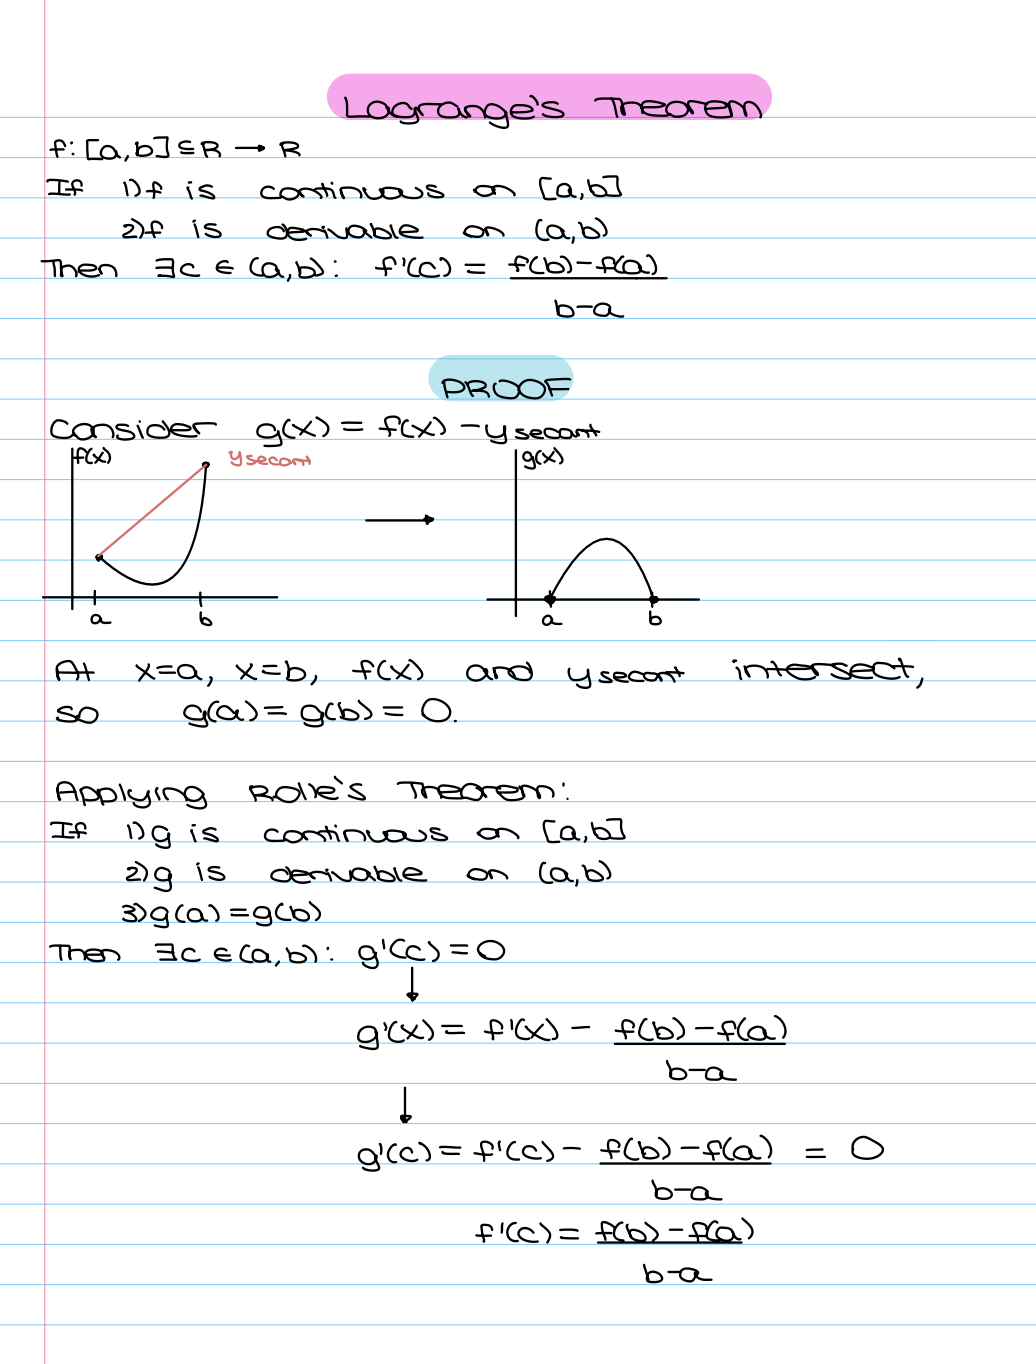 Lagrange's Theorem
f: [a,b] ⊆ R → R
If 1) f is continuous on [a,b]
2) f is derivable on (a,b)
Then ∃c ∈ (a,b): f'(c) = f(b)-f(a)
b-a
PROOF
Consider g(x) = f(x) - y secant
f(x) y secant g(x)
→
a b a b
At x=a, x=b, f(x) and y secant intersect,
so g(a) = g(b) = 0.
Applying Rolle's Theorem:
If 1) g is continuous on [a,b]
2) g is derivable on (a,b)
3) g(a) = g(b)
Then ∃c ∈ (a,b): g'(c) = 0
↓
g'(x) = f'(x) - f(b)-f(a)
b-a
↓
g'(c) = f'(c) - f(b)-f(a) = 0
b-a
f'(c) = f(b)-f(a)
b-a